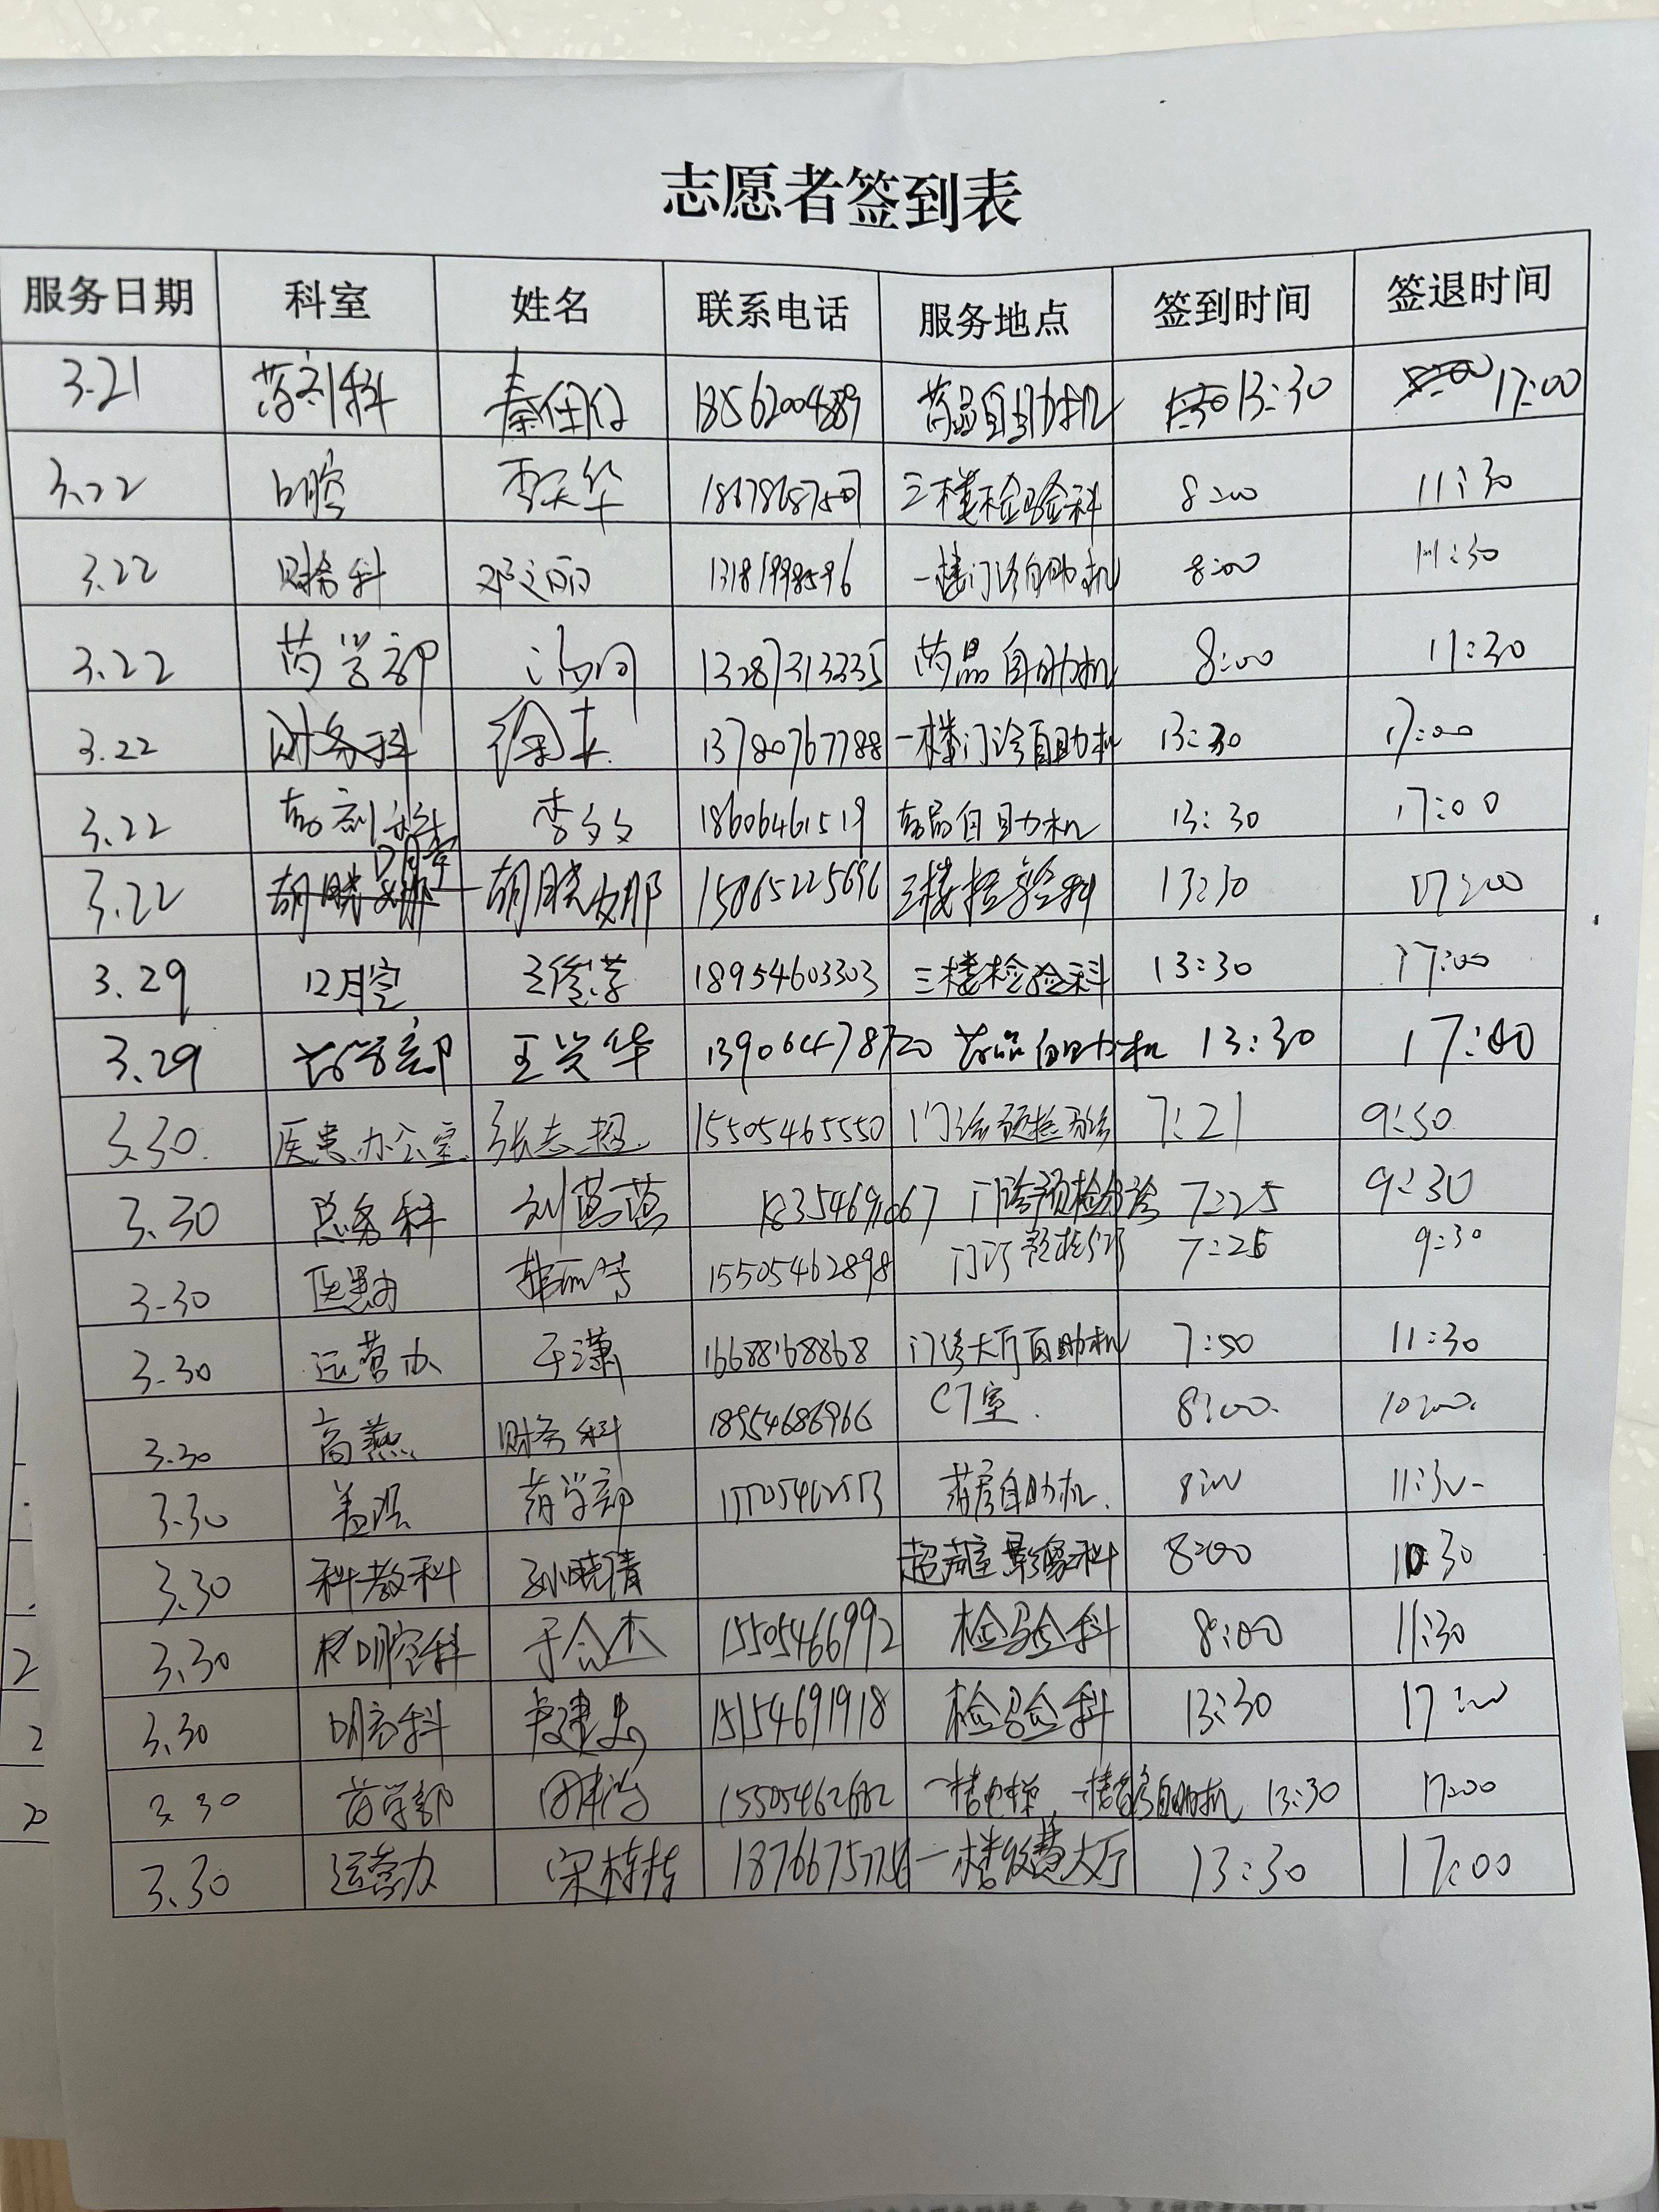 志愿者签到表
服务日期 科室 姓名 联系电话 服务地点 签到时间 签退时间
3.21 药剂科 秦佳仪 18562004889 药品自助机 13:30 17:00
3.22 口腔 李天华 三楼检验科 8:00 11:30
3.22 财务科 邓文丽 一楼门诊自助机 8:00 11:30
3.22 药学部 13287313335 药品自助机 8:00 11:30
3.22 财务科 13780767788 一楼门诊自助机 13:30 17:00
3.22 药剂科 李文文 18606461519 药品自助机 13:30 17:00
3.22 口腔 胡晓娜 15865225696 三楼检验科 13:30 17:00
3.29 口腔 18954603303 三楼检验科 13:30 17:00
3.29 药学部 王兴华 13906478720 药品自助机 13:30 17:00
3.30. 医患办公室 张志超 15505465550 门诊预检分诊 7:21 9:30
3.30 总务科 刘茵茵 门诊预检分诊 7:25 9:30
3.30 医患办 15505462898 门诊预检分诊 7:25 9:30
3.30 运营办 于潇 16688168868 门诊大厅自助机 7:50 11:30
3.30 高燕 财务科 18954686966 CT室. 8:00. 10:00.
3.30 药学部 药房自助机. 8:00 11:30
3.30 科教科 孙晓倩 超声室影像科 8:00 10:30
3.30 口腔科 于合杰 15505466992 检验科 8:00 11:30
3.30 口腔科 15154691918 检验科 13:30 17:00
3.30 药学部 15505462682 13:30 17:00
3.30 运营办 宋栋栋 一楼收费大厅 13:30 17:00
2
2